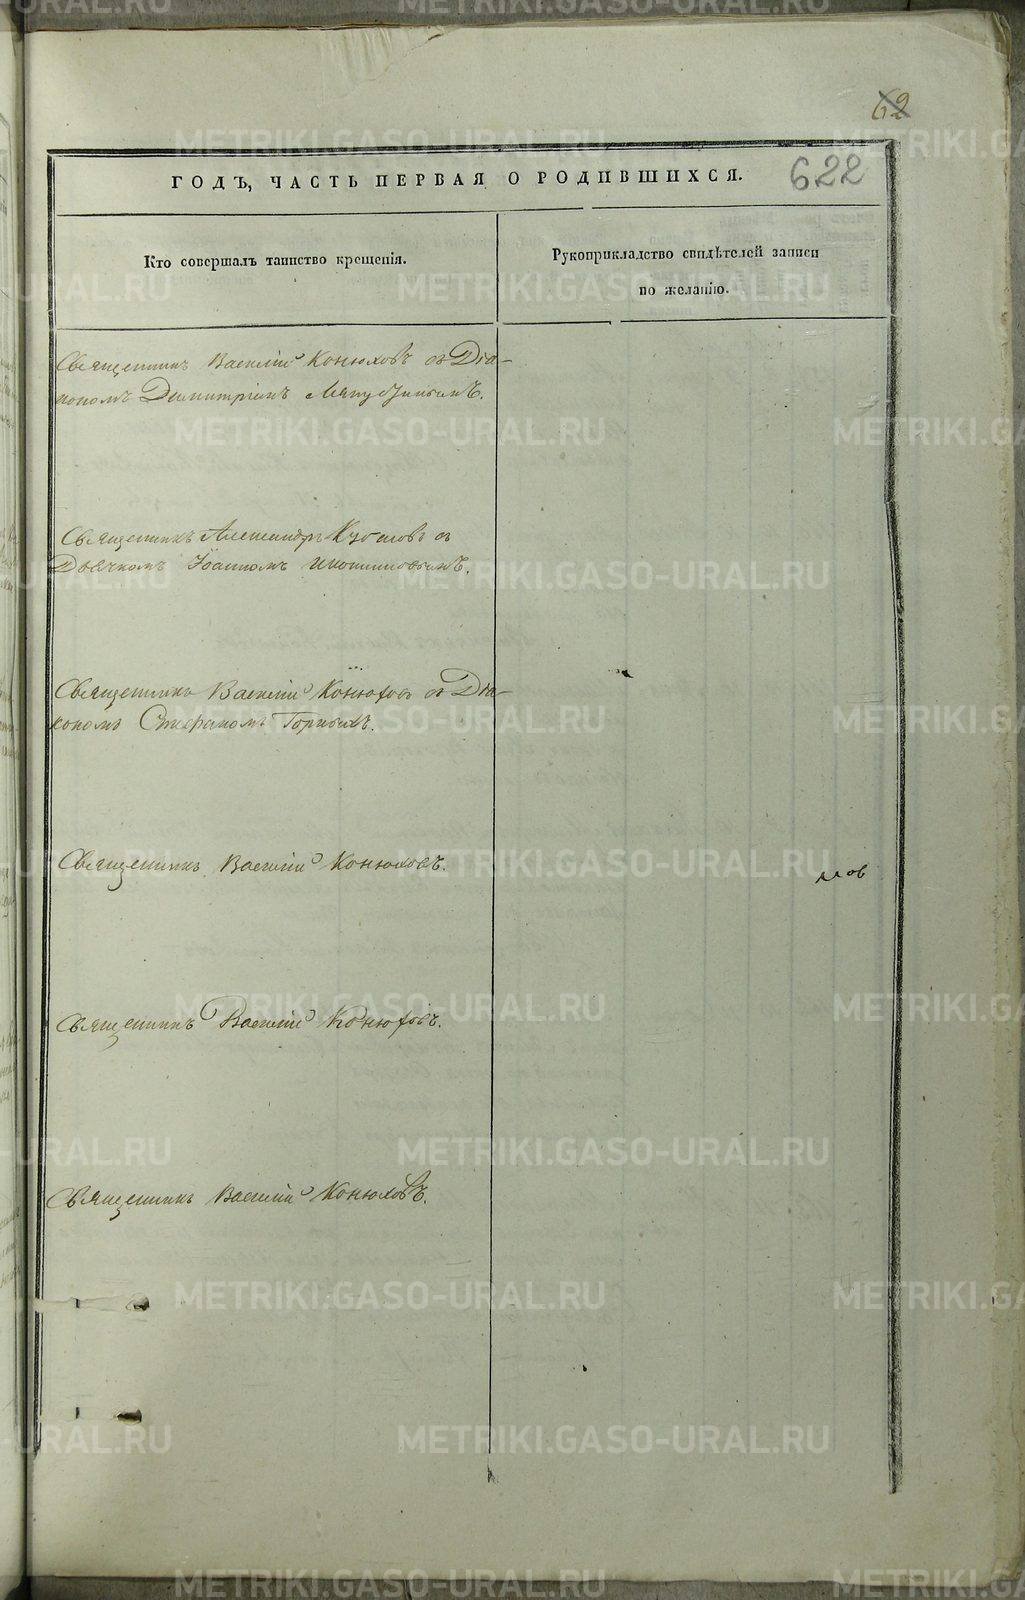 62
622
ГОДЪ, ЧАСТЬ ПЕРВАЯ О РОДИВШИХСЯ.
Кто совершалъ таинство крещенія.
Рукоприкладство свидѣтелей записи
по желанію.
Священникъ Василій Конюховъ съ Діа-
кономъ Димитріемъ
Священникъ Александръ съ
Дьячкомъ Іоанномъ Иконниковымъ.
Священникъ Василій Конюховъ съ Діа-
кономъ Стефаномъ Горныхъ.
Священникъ Василій Конюховъ.
Священникъ Василій Конюховъ.
Священникъ Василій Конюховъ.
METRIKI.GASO-URAL.RU